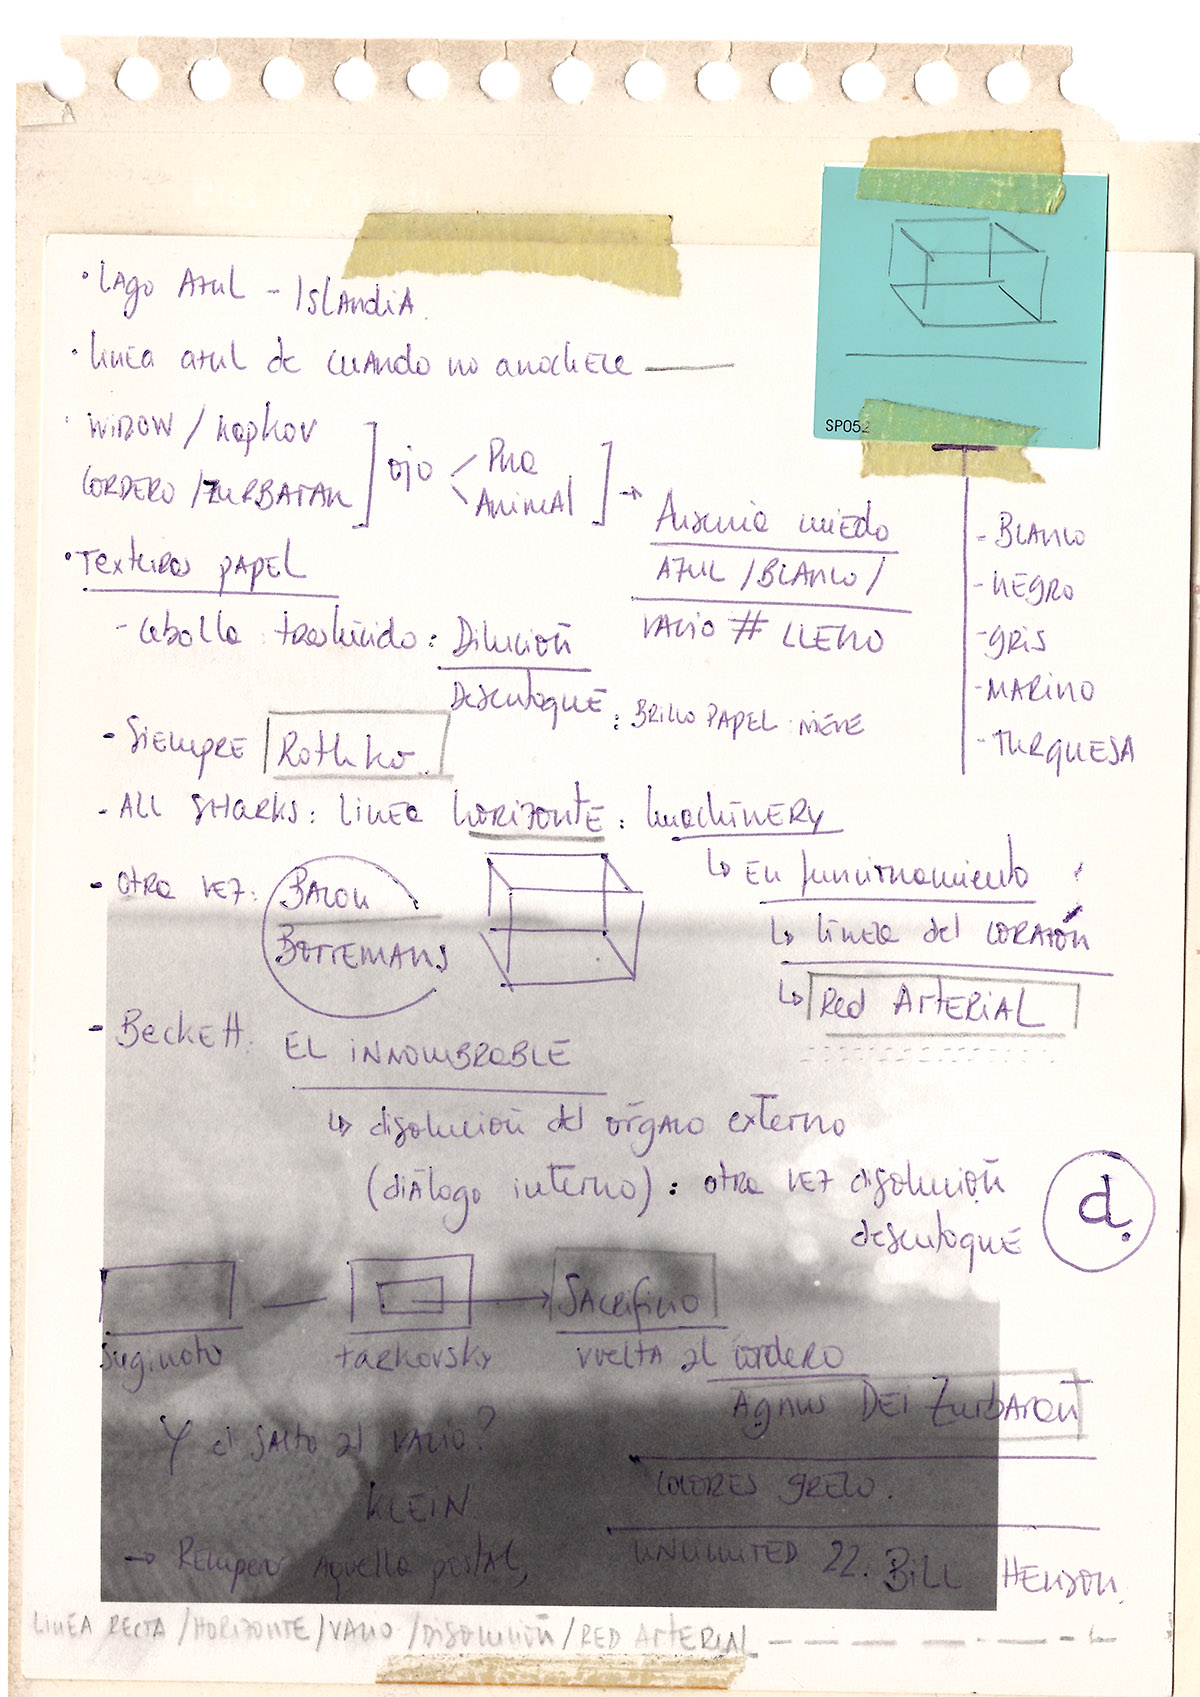 SP052
· Lago Azul - Islandia.
· linea azul de cuando no anochece
· WIDOW /
CORDERO / ZURBARAN
ojo
Púa
Animal
→ Ausencia miedo
AZUL / BLANCO /
VACIO # LLENO
- BLANCO
- NEGRO
- GRIS
- MARINO
- TURQUESA
· Textura PAPEL
- cebolla traslúcido: Dilución
Desenfoque: BRILLO PAPEL NIEVE
- SIEMPRE Rothko
- ALL SHARKS: LINEA HORIZONTE: MACHINERY
↳ En funcionamiento
↳ linea del CORAZÓN
↳ Red ARTERIAL
- Otra VEZ: BACON
BORREMANS
- Beckett: EL INNOMBRABLE
↳ disolución del órgano externo
(diálogo interno): otra VEZ disolución
desenfoque
d.
Sugimoto
tarkovsky
Sacrificio
VUELTA al cordero
Agnus DEI Zurbarán
Y el SALTO al VACIO?
KLEIN
COLORES GRECO.
UNLIMITED 22. BILL HENSON.
→ Romper Aquella postal,
LINEA RECTA / HORIZONTE / VACIO / DISOLUCIÓN / RED ARTERIAL